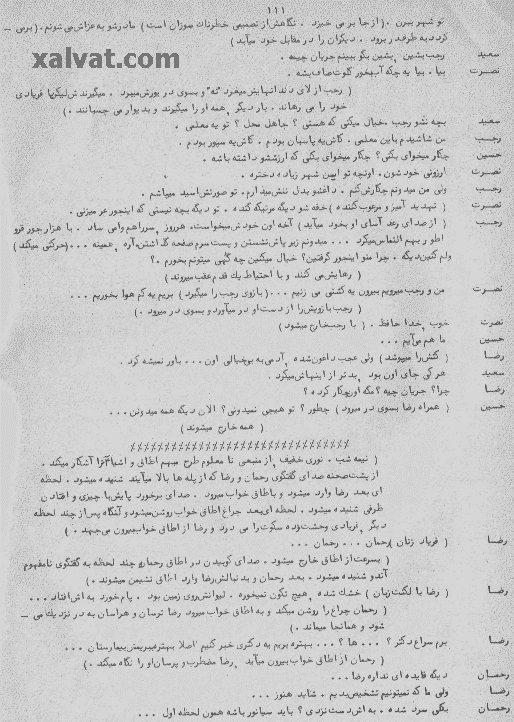 ۱۱۱
تو شهر بیرن . (از جا بر می خیزد . نگاهش از تصمیمی خطرناک سوزان است) مادرشو به عزاش می شونم. (برمی —
گردد به طرف در برود . دیگران را در مقابل خود میآبد)
xalvat.com
سعید رجب بشین، بشین بگو ببینم جریان چیه.
نصرت بیا . بیا یه چکه آب بخور گلوت صاف بشه .
(رجب از لای دندانهایش میغرد "نه" و بسوی در یورش میبرد . میگیرندش لیکن با فریادی
خود را می رهاند . بار دیگر همه او را میگیرند و به دیوار می چسبانند .)
سعید بچه نشو رجب . خیال میکنی که هستی ؟ جاهل محل ؟ تو یه معلمی .
رجب من شاشیدم باین معلمی . کاش یه پاسبان بودم . کاش یه سپور بودم .
حسین چکار میخوای بکنی؟ چکار میخوای بکنی که ارزششو داشته باشه .
نصرت ارزونی خودشون . اونچه تو این شهر زیاده دختره .
رجب ولی من میدونم چکارش کنم . داغشو بدل ننش میذارم . تو صورتش اسید میپاشم .
نصرت (تهدید آمیز و مرعوب کننده) خفه شو دیگه مرتیکه گنده . تو دیگه بچه نیستی که اینجور عر میزنی .
رجب (از صدای رعد آسای او بخود میآید) آخه اون خودش میخواست. هرروز سرراهم وامی ساد . با هزار جور قر و
اطوار بهم التماس میکرد ... میدونم زیر پاش نشستن و پست سرم صفحه گذاشتن. آره ، همینه ... (حرکتی میکند)
ولم کنین دیگه . چرا منو اینجور گرفتین؟ خیال میکنین چه گهی میتونم بخورم .؟
(رهایش می کنند و با احتیاط یک قدم عقب میروند)
نصرت من و رجب میرویم بیرون یه گشتی می زنیم ... (بازوی رجب را میگیرد) بریم یه کم هوا بخوریم ...
(رجب بازویش را از دست او در میآورد و بسوی در میرود .)
نصرت خوب، خدا حافظ . (با رجب خارج میشود)
حسین ما هم می آیم ...
رضا (کتش را میپوشد) ولی عجب داغون شده ، آدمی به بی خیالی اون ... باور نمیشه کرد .
سعید هر کی جای اون بود ، بدتر از اینهاش میکرد .
رضا چرا؟ جریان چیه ؟ مگه اون چکار کرده ؟
حسین (همراه رضا بسوی در میرود) چطور ؟ تو هیچی نمیدونی؟ الان دیگه همه میدونن ...
(همه خارج میشوند)
××××××××××××××××××××××××××××××
(نیمه شب . نوری خفیف از منبعی نا معلوم طرح مبهم اطاق و اشیاء آنرا آشکار میکند .
از پشت صحنه صدای گفتگوی رحمان و رضا که از پله ها بالا میآیند شنیده میشود . لحظه
ای بعد رضا وارد میشود و باطاق خواب میرود . صدای برخورد پایش با چیزی و افتادن
ظرفی شنیده میشود . لحظه ای بعد چراغ اطاق خواب روشن میشود و آنگاه پس از چند لحظه
دیگر ، فریادی وحشت زده سکوت را می درد و رضا از اطاق خواب بیرون می جهد .)
رضا (فریاد زنان) رحمان ... رحمان ...
(بسرعت از اطاق خارج میشود . صدای کوبیدن در اطاق رحمان و چند لحظه به گفتگوی نامفهوم
آندو شنیده میشود . بعد رحمان و بدنبالش رضا وارد اطاق نشیمن میشوند .)
رضا (رضا با لکنت زبان) خشک شده ، هیچ تکون نمیخوره . لیوانش روی زمین بود . پام خورد به اش افتاد ...
(رحمان چراغ را روشن میکند و به اطاق خواب میرود رضا ترسان و هراسان به در نزدیک می —
شود و همانجا میماند .)
رضا برم سراغ دکتر ؟ ... ها ؟ ... بهتره بریم یه دکتری خبر کنیم اصلا بهتره ببریمش بیمارستان ...
(رحمان از اطاق خواب بیرون میآید ، رضا مضطرب و پرسان او را نگاه میکند .)
رحمان دیگه فایده ای نداره رضا ...
رضا ولی ما که نمیتونیم تشخیص بدیم . شاید هنوز ...
رحمان بکلی سرد شده . به اش دست نزدی ؟ باید سیانور باشه همون لحظه اول ...